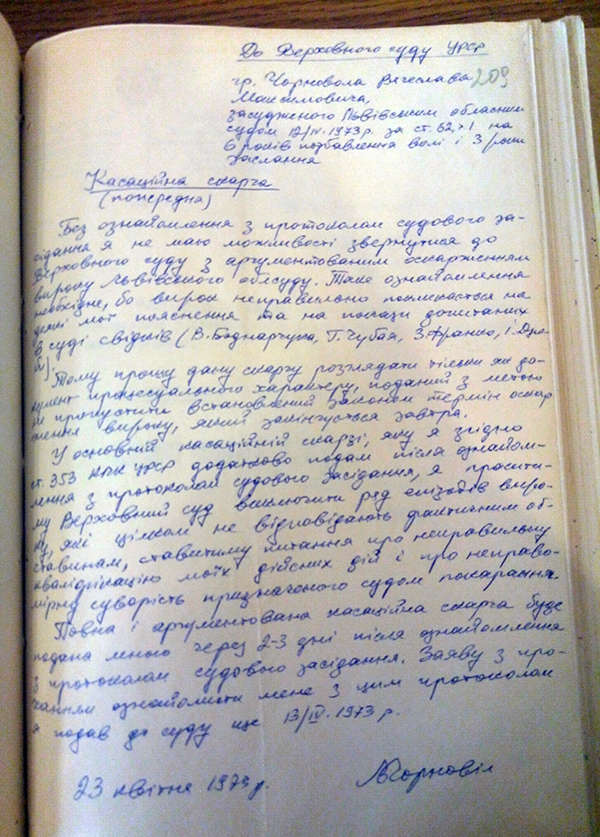 До Верховного суду УРСР
209
гр. Чорновола Вячеслава
Максимовича,
засудженого Львівським обласним
судом 12/IV-1973 р. за ст. 62 ч 1 на
6 років позбавлення волі і 3 роки
заслання
Касаційна скарга
(попередня)
Без ознайомлення з протоколом судового за-
сідання я не маю можливості звернутися до
Верховного суду з аргументованим оскарженням
вироку Львівського облсуду. Таке ознайомлення
необхідне, бо вирок неправильно посилається на
деякі мої пояснення та на покази допитаних
в суді свідків (В. Боднарчука, Г. Чубая, З. Франко, І. Дзю-
би).
Тому прошу дану скаргу розглядати тільки як до-
кумент процесуального характеру, поданий з метою
не пропустити встановлений законом термін оскар
ження вироку, який закінчується завтра.
У основній касаційній скарзі, яку я згідно
ст. 353 КПК УРСР додатково подам після ознайом-
лення з протоколом судового засідання, я просити-
му Верховний суд виключити ряд епізодів виро-
ку, які цілком не відповідають фактичним об-
ставинам, ставитиму питання про неправильну
кваліфікацію моїх дійсних дій і про неправо-
мірну суворість призначеного судом покарання.
Повна і аргументована касаційна скарга буде
подана мною через 2-3 дні після ознайомлення
з протоколом судового засідання. Заяву з про-
ханням ознайомити мене з цим протоколом
я подав до суду ще 13/IV-1973 р.
23 квітня 1973 р.
Чорновіл